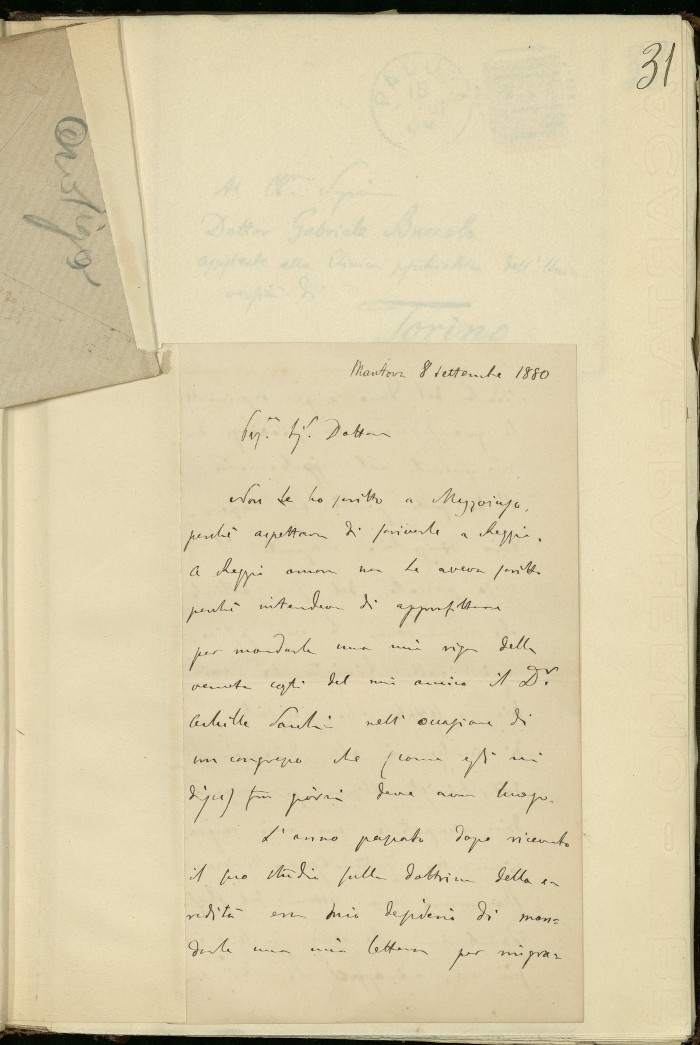 31
Ardigò
Al Ch.mo Signor
Dottor Gabriele Buccola
assistente alla Clinica psichiatrica dell' Uni-
versità di
Torino
Mantova 8 settembre 1880
Preg.mo Sig.r Dottore
Non Le ho scritto a Mezzojuso,
perchè aspettava di scriverle a Reggio.
A Reggio ancora non Le aveva scritto
perchè intendeva di approfittare
per mandarle una mia riga della
venuta costì del mio amico il D.r
Achille Sacchi nell' occasione di
un congresso che (come egli mi
disse) fra giorni deve aver luogo.
L' anno passato dopo ricevuto
il suo studio sulla dottrina della e-
redità era mio desiderio di man=
darle una mia lettera per ringra=